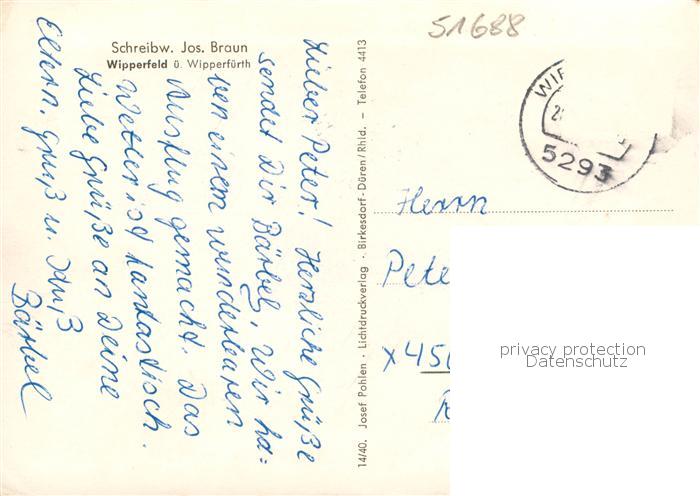 51688
Schreibw. Jos. Braun
Wipperfeld ü. Wipperfürth
Lieber Peter! Herzliche Grüße
sendet Dir Bärbel. Wir ha-
ben einem wunderbaren
Ausflug gemacht. Das
Wetter ist fantastisch.
Liebe Grüße an Deine
Eltern. Gruß u. Kuß
Bärbel
14/40. Josef Pohlen · Lichtdruckverlag · Birkesdorf-Düren/Rhld. – Telefon 4413
WIP
5293
Herrn
Pete
x 45
privacy protection
Datenschutz